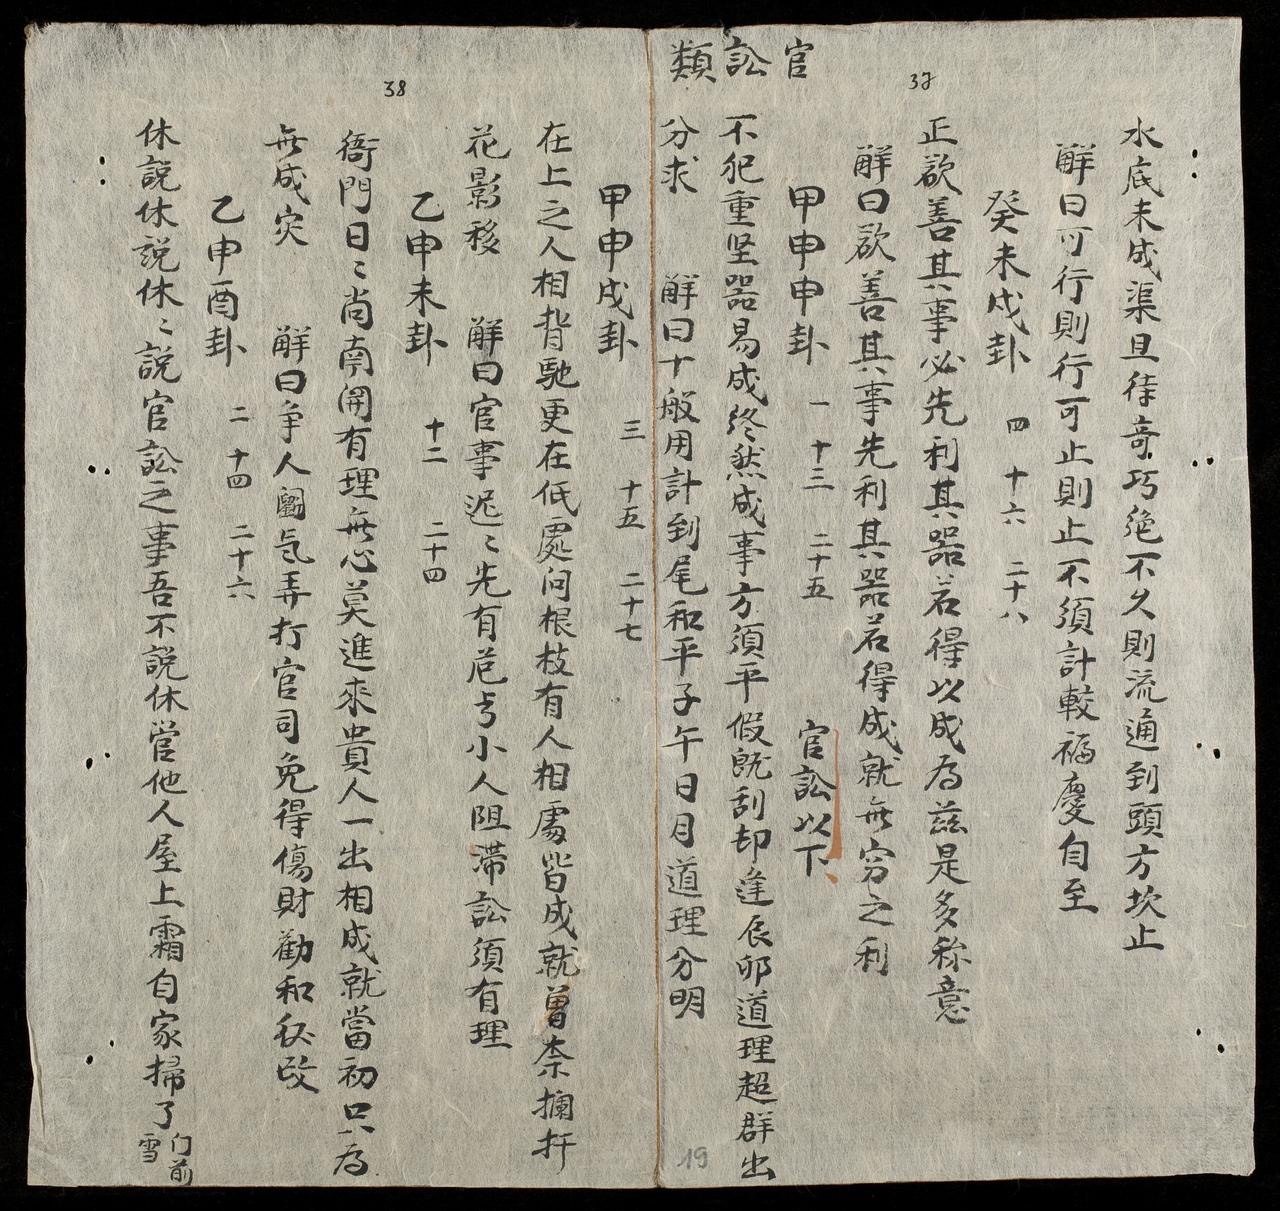 官訟類
37
水底未成渠且待竒巧絶不久則流通到頭方坎止
解曰可行則行可止則止不須計較福慶自至
癸未戌卦 四 十六 二十八
正欲善其事必先利其器若得以成為兹是多称意
解曰欲善其事先利其器若得成就無穷之利
甲申申卦 一 十三 二十五 官訟以下
不犯重坚器易成终然成事方須平假既刮却逢辰卯道理超群出
分求 解曰十般用計到尾和平子午日月道理分明
38
甲申戌卦 三 十五 二十七
在上之人相背馳更在低處问根枝有人相處皆成就曽柰攔扞
花影移 解曰官事迟〻先有苊㝍小人阻滞訟須有理
乙申未卦 十二 二十四
衙門日〻尚南開有理無心莫進來貴人一出相成就當初只為
無成灾 解曰争人闘氣弄打官司免得傷財勸和秘改
乙申酉卦 二 十四 二十六
休說休説休〻説官訟之事吾不説休営他人屋上霜自家掃了门前雪
19